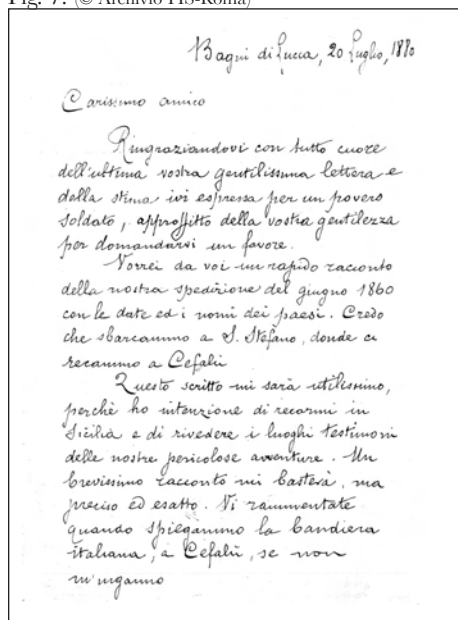 Fig. 7. (© Archivio FIS-Roma)
Bagni di Lucca, 20 Luglio, 1880
Carissimo amico
Ringraziandovi con tutto cuore
dell'ultima vostra gentilissima lettera e
della stima ivi espressa per un povero
soldato, approffitto della vostra gentilezza
per domandarvi un favore.
Vorrei da voi un rapido racconto
della nostra spedizione del giugno 1860
con le date ed i nomi dei paesi. Credo
che sbarcammo a S. Stefano, donde ci
recammo a Cefalù
Questo scritto mi sarà utilissimo,
perchè ho intenzione di recarmi in
Sicilia e di rivedere i luoghi testimoni
delle nostre pericolose avventure. Un
brevissimo racconto mi basterà, ma
preciso ed esatto. Vi rammentate
quando spiegammo la bandiera
italiana, a Cefalù, se non
m'inganno